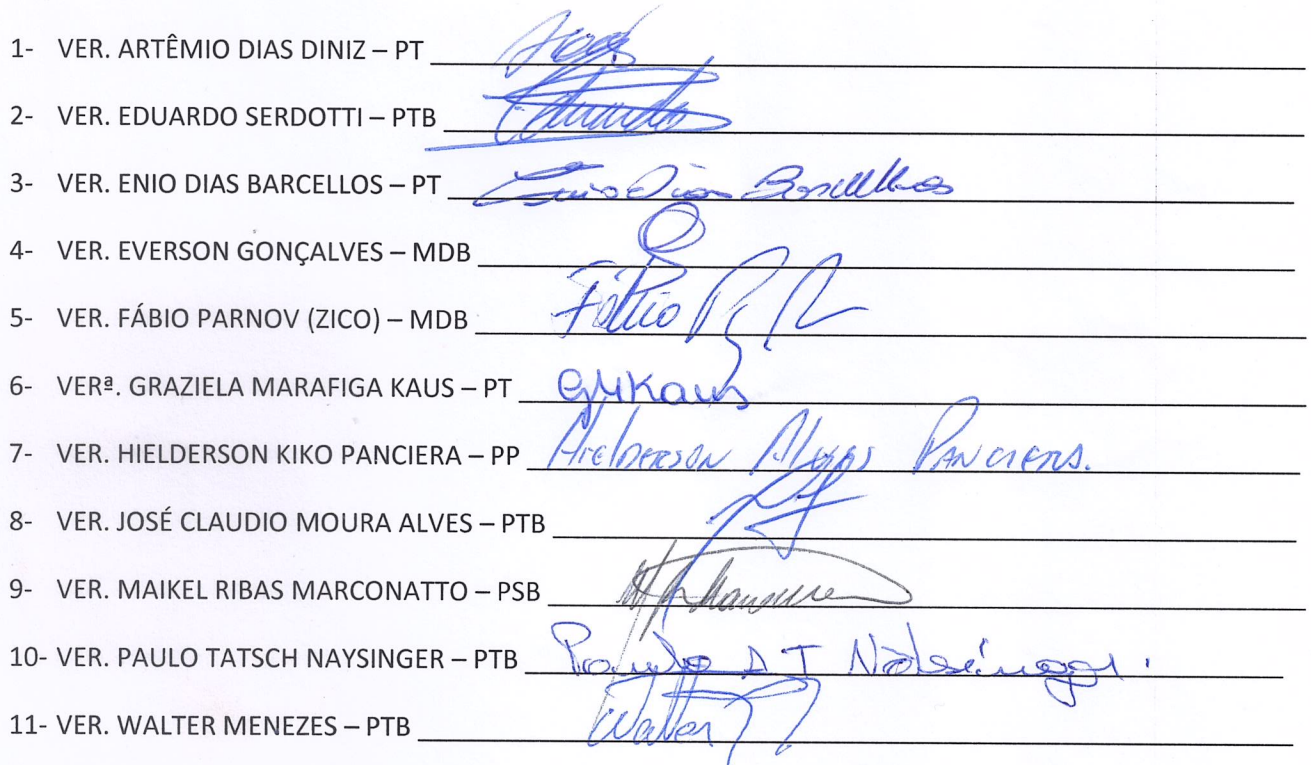 1- VER. ARTÊMIO DIAS DINIZ – PT
2- VER. EDUARDO SERDOTTI – PTB Eduardo
3- VER. ENIO DIAS BARCELLOS – PT Enio Dias Barcellos
4- VER. EVERSON GONÇALVES – MDB
5- VER. FÁBIO PARNOV (ZICO) – MDB Fábio
6- VERª. GRAZIELA MARAFIGA KAUS – PT GMKaus
7- VER. HIELDERSON KIKO PANCIERA – PP Hielderson Alves Panciera.
8- VER. JOSÉ CLAUDIO MOURA ALVES – PTB
9- VER. MAIKEL RIBAS MARCONATTO – PSB
10- VER. PAULO TATSCH NAYSINGER – PTB Paulo A T
11- VER. WALTER MENEZES – PTB Walter